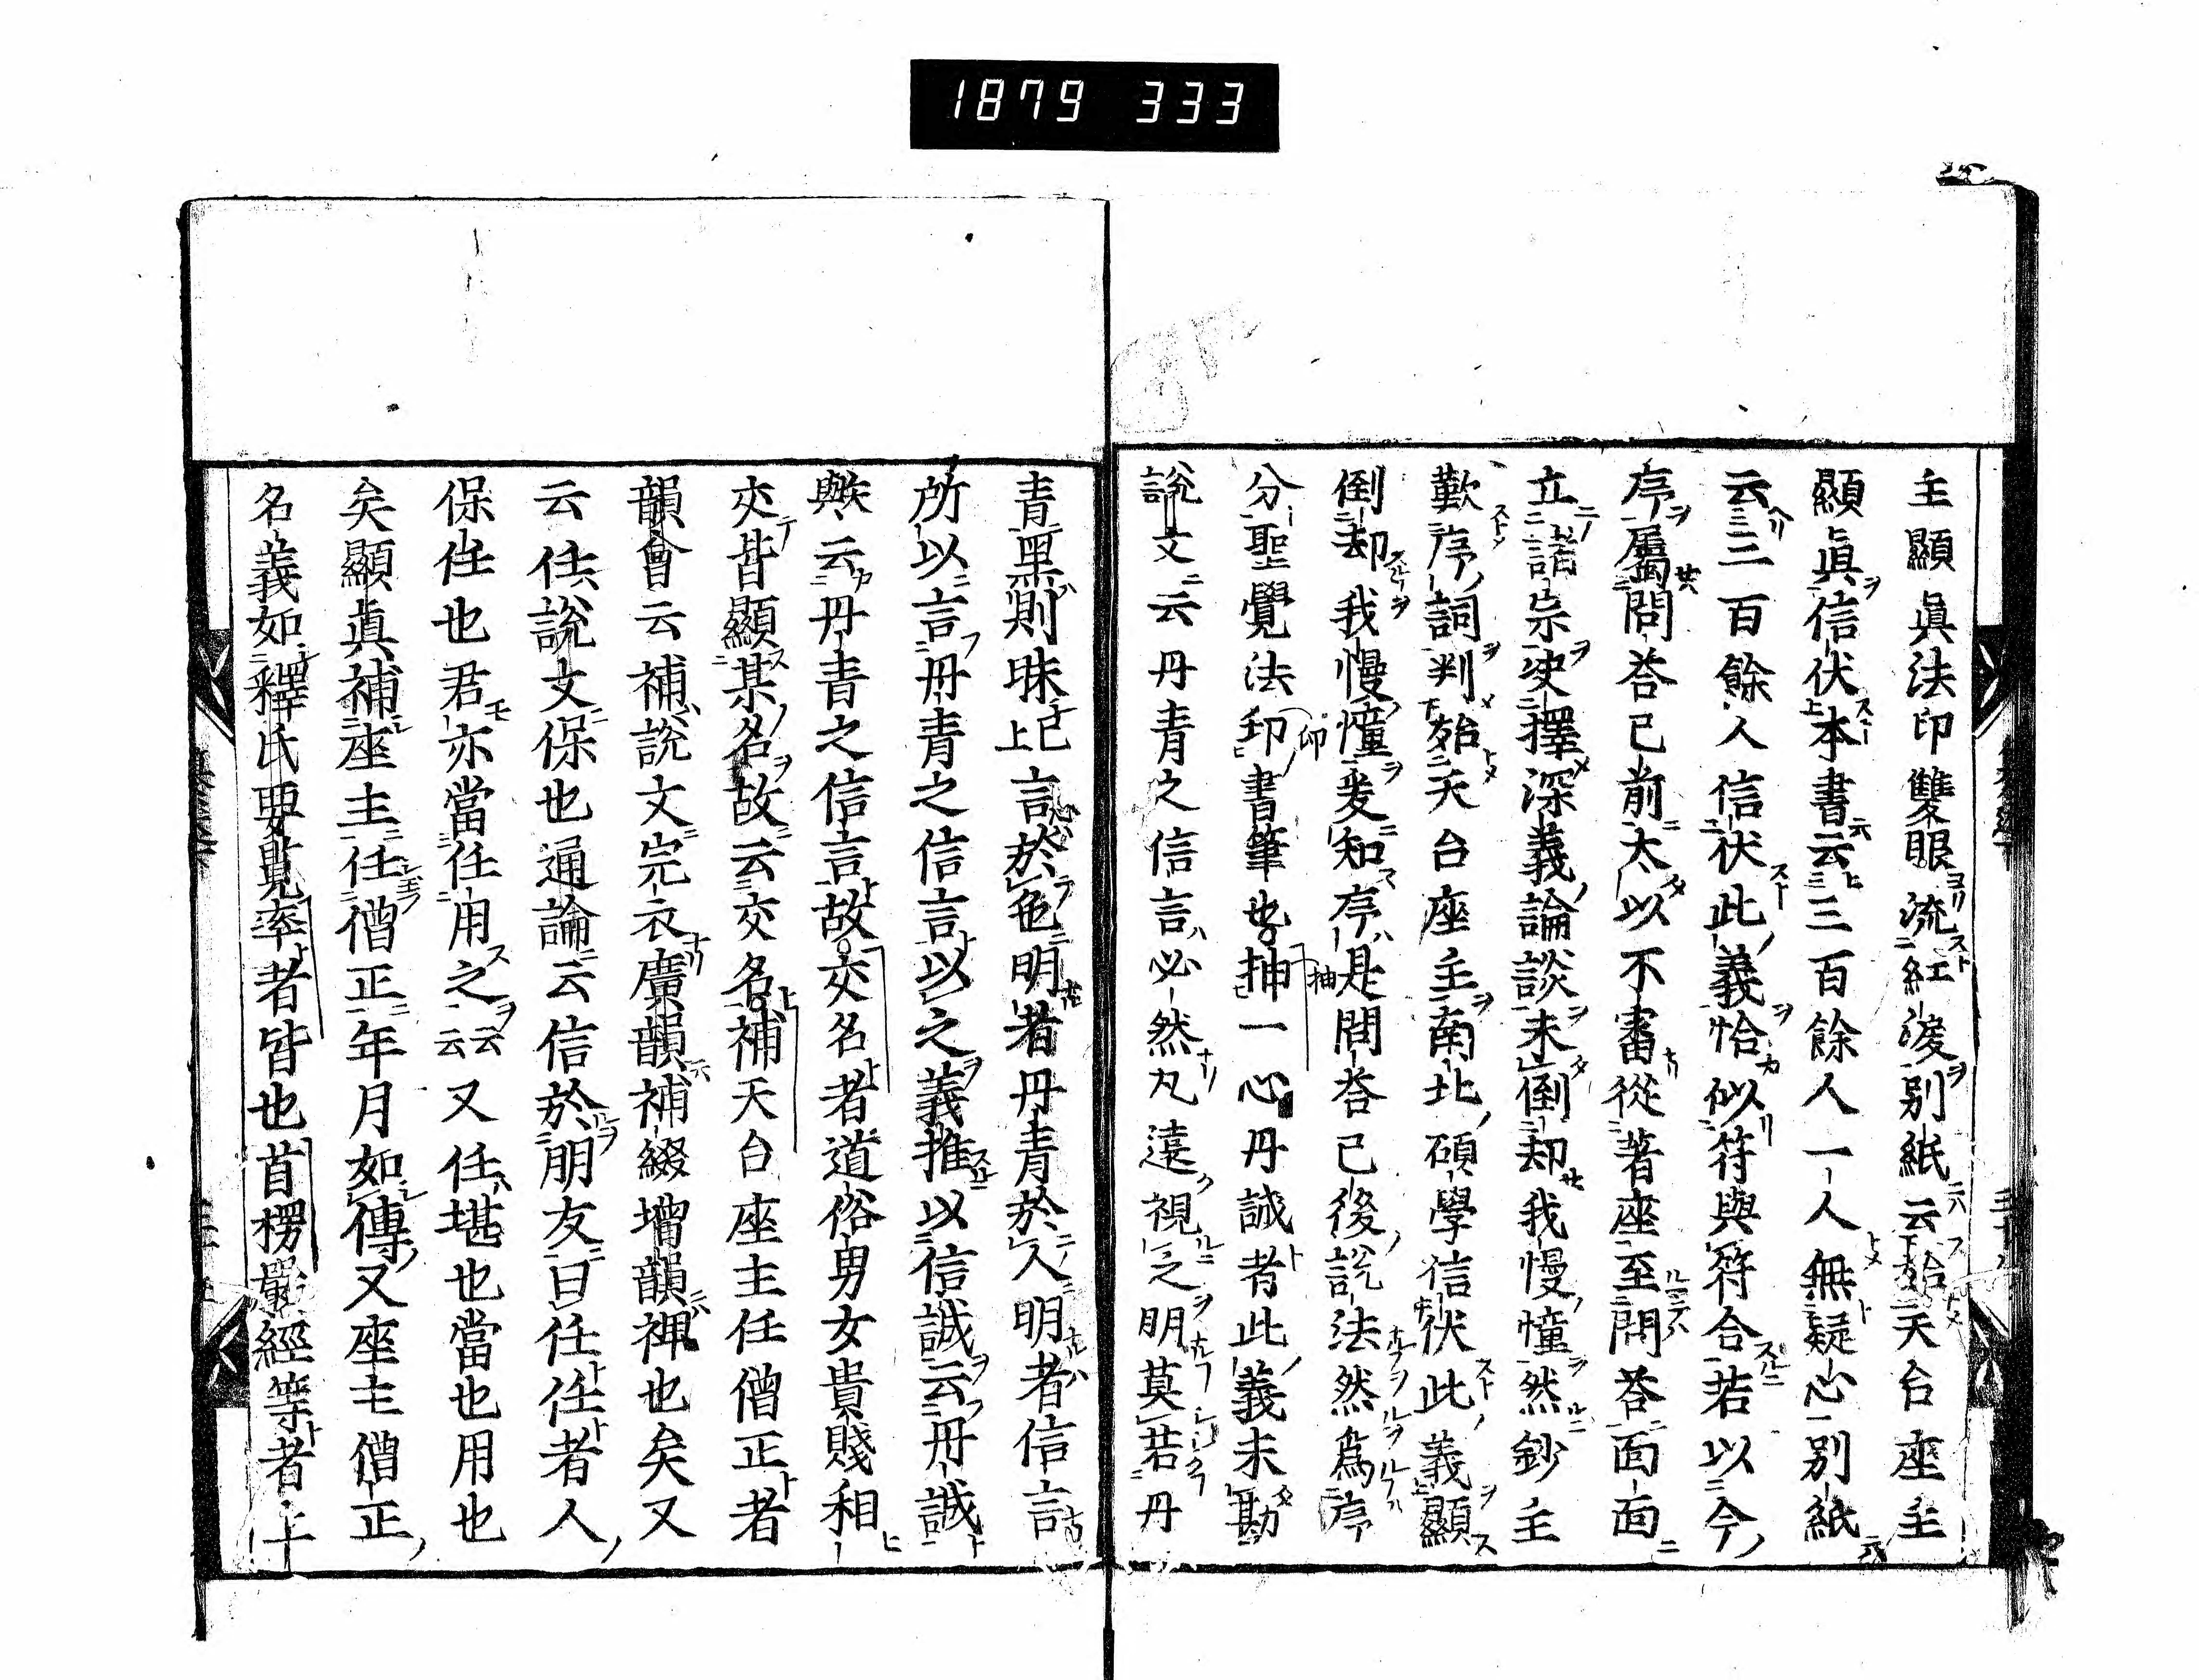 1879 333
主顯眞法印雙眼流紅淚別紙云始天台座主
顯眞信伏本書云三百餘人一人無疑心別紙
云三百餘人信伏此義恰似符與符合若以今
序屬問荅已前太以不審從著座至問荅面面
立諸宗使擇深義論談未倒却我慢憧然鈔主
歎序詞判始天台座主南北碩學信伏此義顯
倒却我慢憧爰知序是問荅已後說法然爲序
分聖覺法印書筆也抽一心丹誠者此義未勘
說文云丹青之信言必然凡遠視之明莫若丹
青黑則昧已上言於色明者丹青於人明者信言
所以言丹青之信言以之義推以信誠云丹誠
歟云丹青之信言故交名者道俗男女貴賤相
交皆顯某名故云交名補天台座主任僧正者
韻會云補說文完衣廣韻補綴增韻裨也矣又
云任說文保也通論云信於朋友曰任任者人
保任也君亦當任用之云云又任堪也當也用也
矣顯眞補座主任僧正年月如傳又座主僧正
名義如釋氏要覽率者皆也首楞嚴經等者上